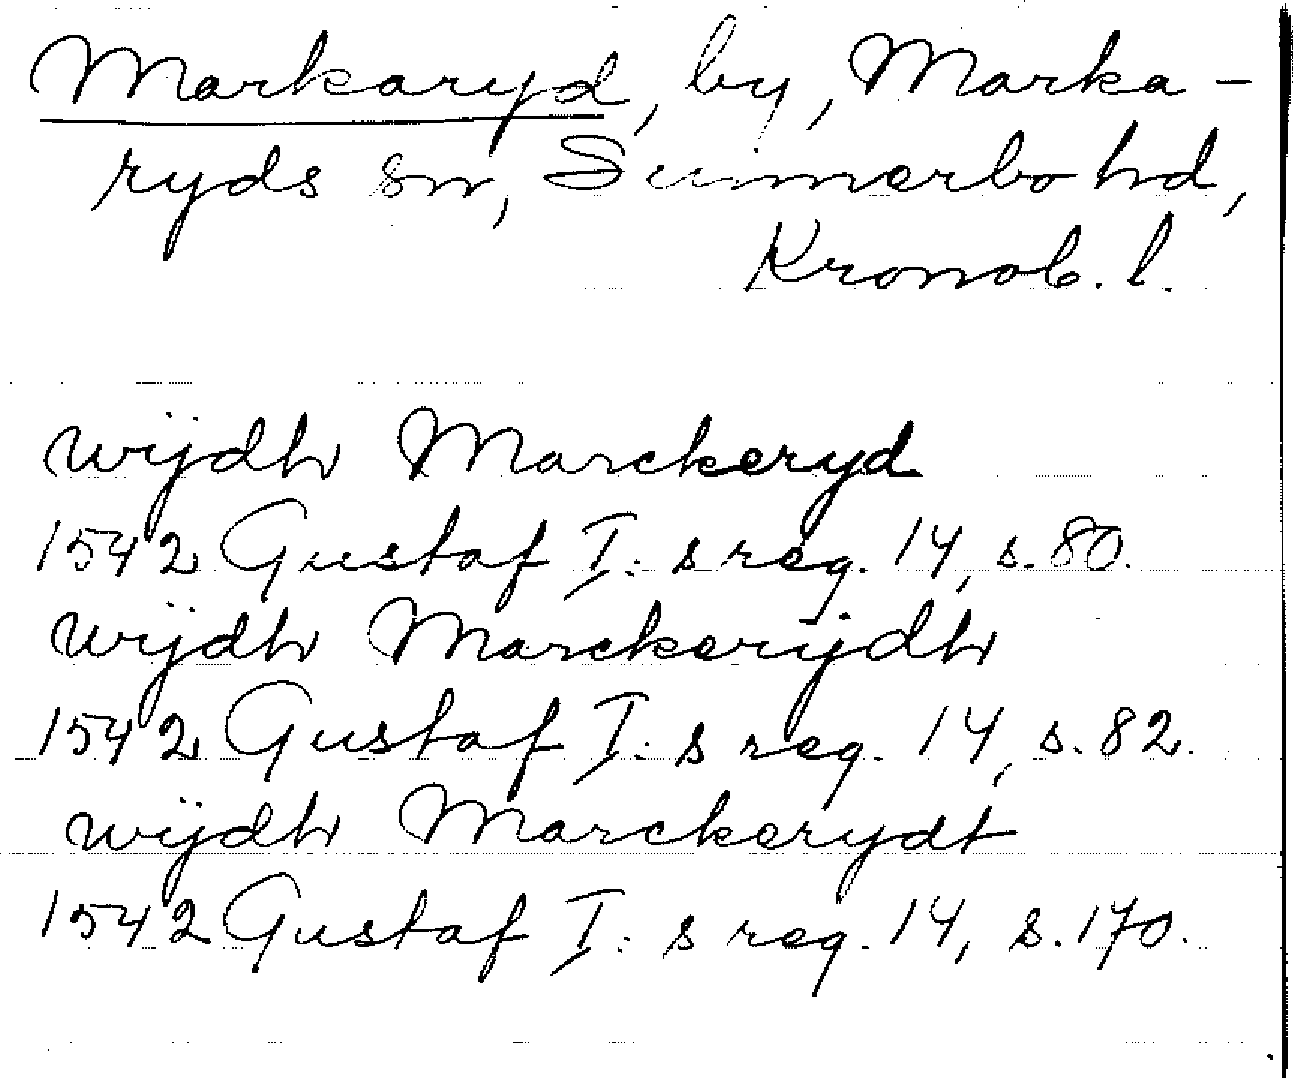 Markaryd, by, Marka-
ryds sn, Sunnerbo hd,
Kronob. l.
wijdh Marckeryd
1542 Gustaf I:s reg. 14, s. 80.
wijdh Marckerÿdh
1542 Gustaf I:s reg. 14, s. 82.
wijdh Marckerydt
1542 Gustaf I:s reg. 14, s. 170.